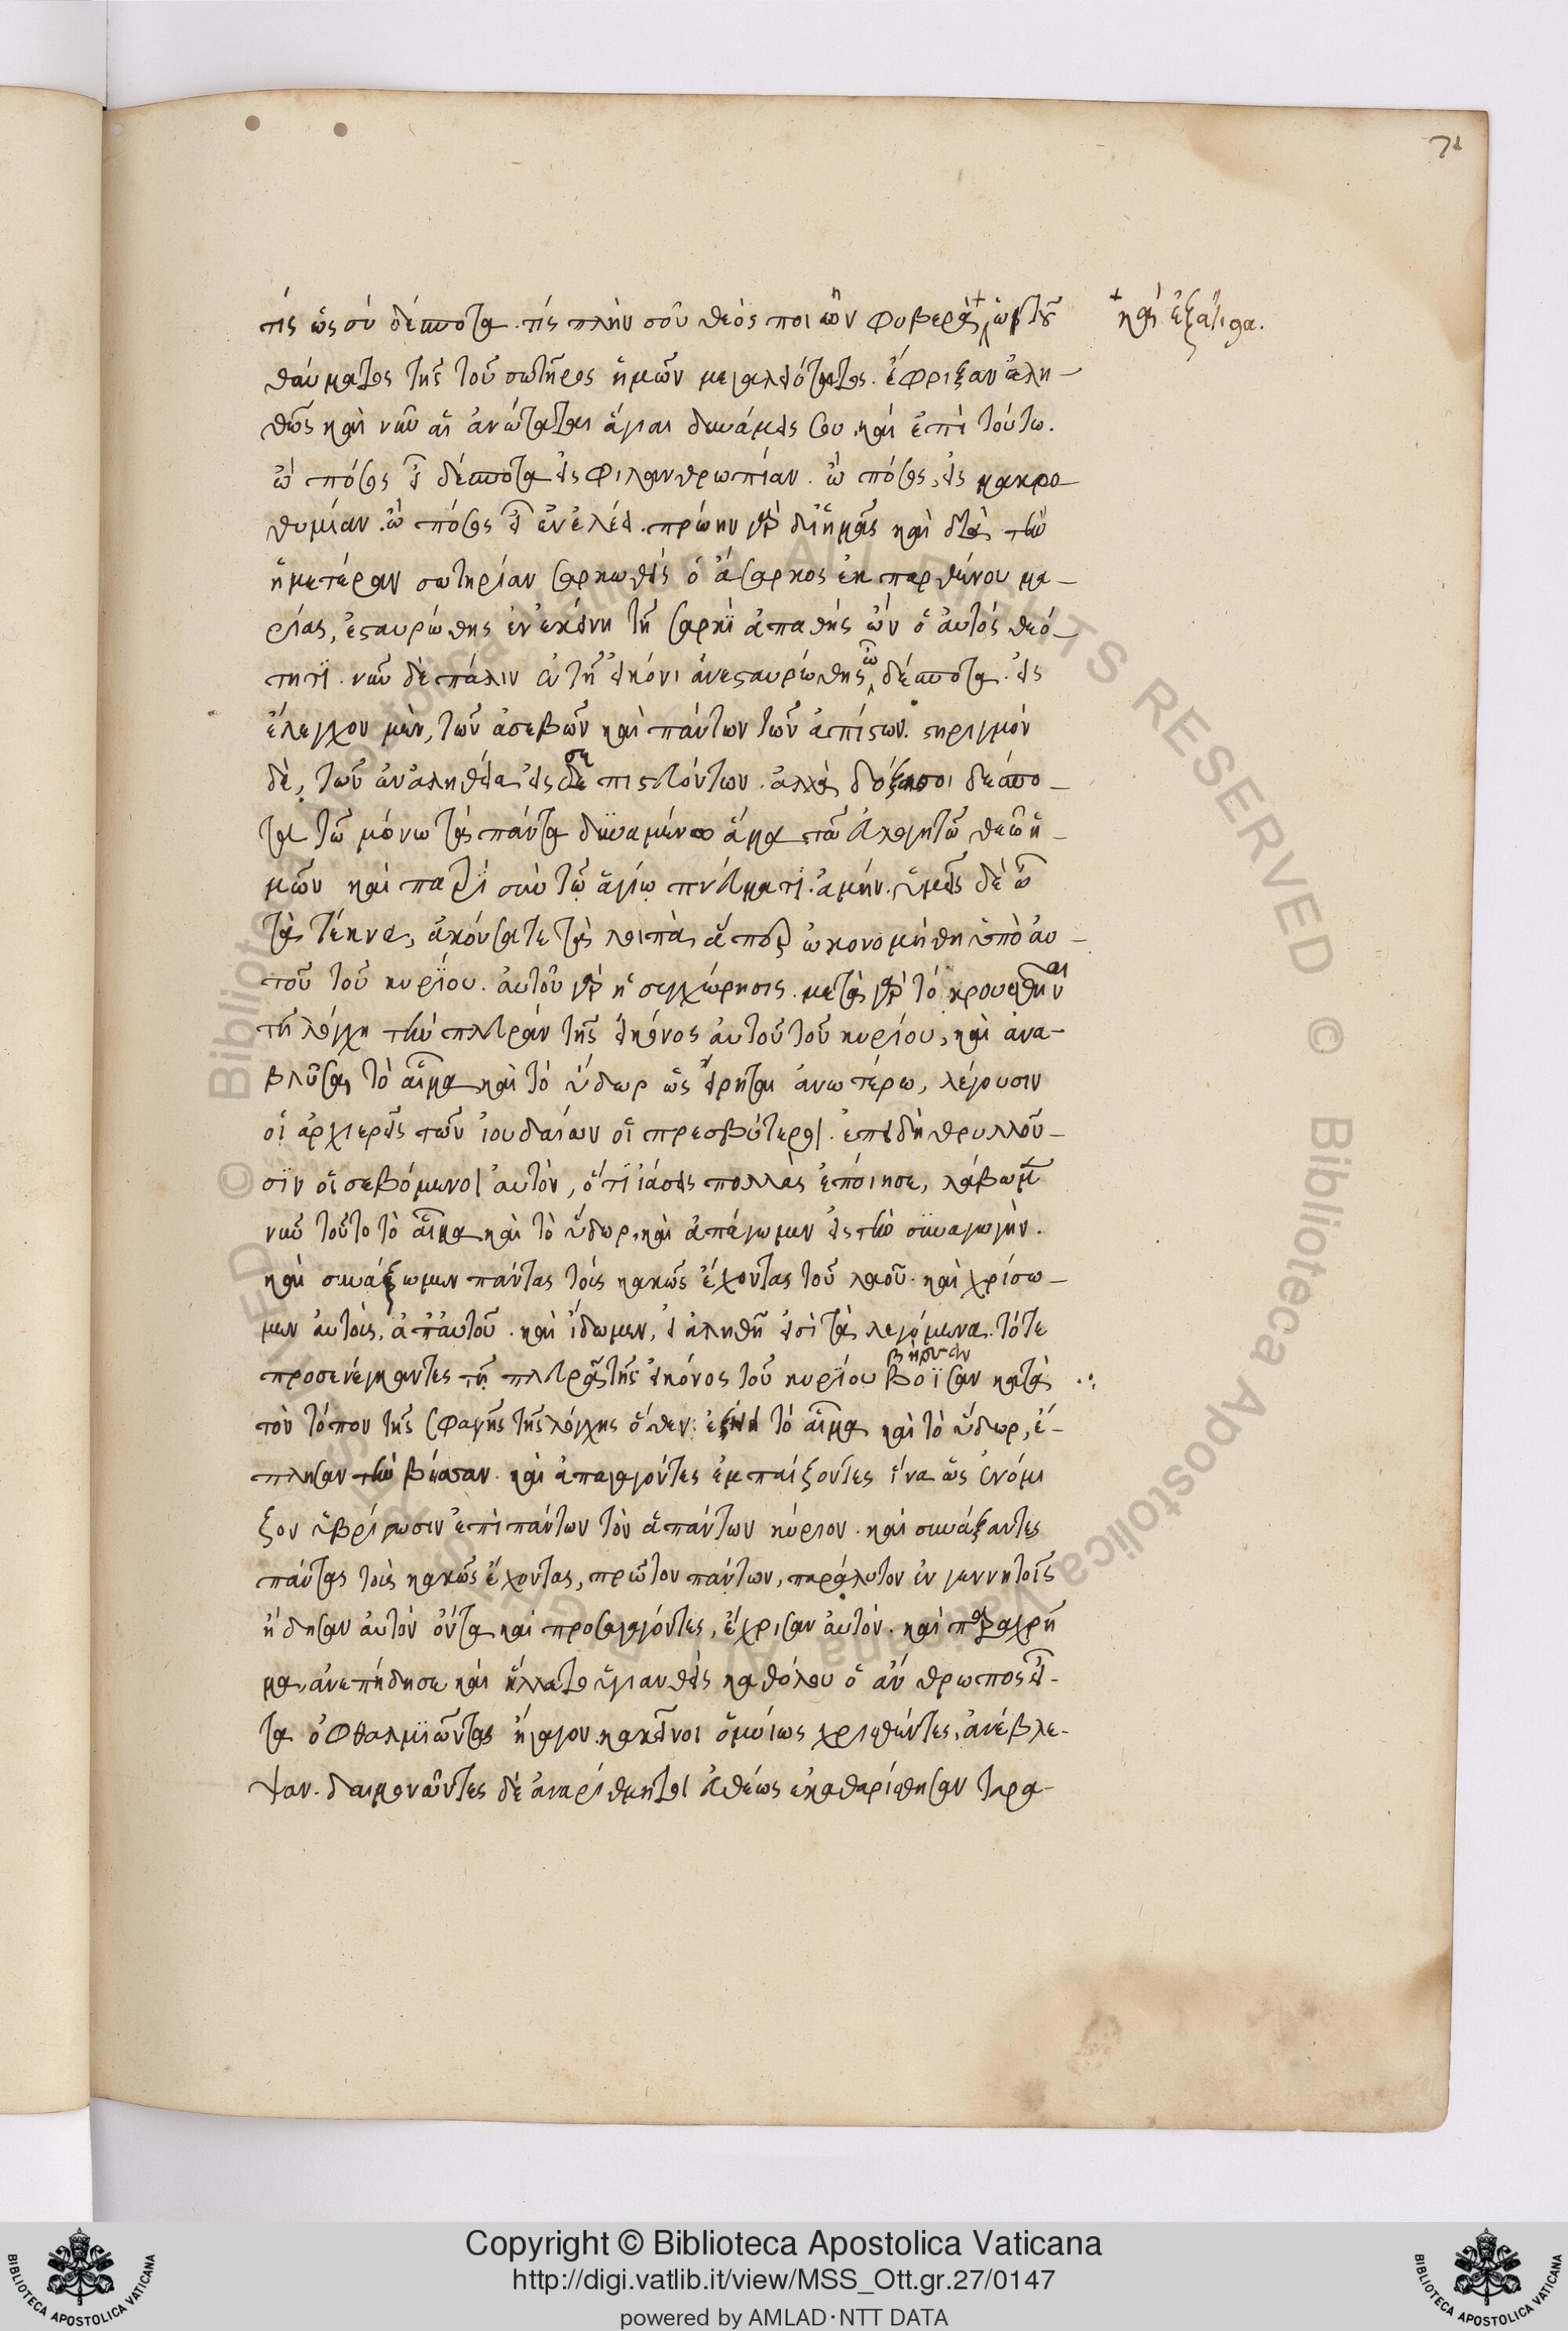 71
τίς ὡς σὺ δέσποτα. τίς πλὴν σοῦ θεὸς ποιῶν φοβερὰ + ὢ τοῦ
+ καὶ ἐξαίσια.
θαύματος τῆς τοῦ σωτῆρος ἡμῶν μεγαλειότητος. ἔφριξαν ἀλη-
θῶς καὶ νῦν αἱ ἀνώταται ἅγιαι δυνάμεις σου καὶ ἐπὶ τούτω.
ὢ πόσος εἶ δέσποτα εἰς φιλανθρωπίαν. ὢ πόσος, εἰς μακρο-
θυμίαν. ὢ πόσος εἶ ἐν ἐλέει. πρώην γὰρ δι' ἡμᾶς καὶ διὰ τὴν
ἡμετέραν σωτηρίαν σαρκωθεὶς ὁ ἄσαρκος ἐκ παρθένου μα-
ρίας, ἐσταυρώθης ἐν ἐκείνη τῇ σαρκὶ ἀπαθὴς ὢν ὁ αὐτὸς θεό-
τητι. νῦν δὲ πάλιν ἐν τῇ εἰκόνι ἀνεσταυρώθης ὦ δέσποτα. εἰς
ἔλεγχον μὲν, τῶν ἀσεβῶν καὶ πάντων τῶν ἀπίστων. στηριγμὸν
δὲ, τῶν ἐν ἀληθεία εἰς σὲ πιστευόντων. ἀλλὰ δόξα σοι δέσπο-
τα τῶ μόνω τὰ πάντα δυναμένω ἅμα τῶ εὐλογητῶ θεῶ ἡ-
μῶν καὶ πατρὶ σὺν τῶ ἁγίω πνεύματι. ἀμήν. ὑμεῖς δὲ ὦ
τὰ τέκνα, ἀκούσατε τὰ λοιπὰ ἅπερ ὠκονομήθη ὑπὸ αὐ-
τοῦ τοῦ κυρίου. αὐτοῦ γὰρ ἡ συγχώρησις. μετὰ γὰρ τὸ κρουσθῆναι
τῆ λόγχη τὴν πλευρὰν τῆς εἰκόνος αὐτοῦ τοῦ κυρίου, καὶ ἀνα-
βλῦσαι τὸ αἷμα καὶ τὸ ὕδωρ ὡς εἴρηται ἀνωτέρω, λέγουσιν
οἱ ἀρχιερεῖς τῶν ἰουδαίων οἱ πρεσβύτεροι. ἐπειδὴ θρυλλοῦ-
σιν οἱ σεβόμενοι αὐτὸν, ὅτι ἰάσεις πολλὰς ἐποίησε, λάβωμεν
νῦν τοῦτο τὸ αἷμα καὶ τὸ ὕδωρ, καὶ ἀπάγωμεν εἰς τὴν συναγωγὴν.
καὶ συνάξωμεν πάντας τοὺς κακῶς ἔχοντας τοῦ λαοῦ. καὶ χρίσω-
μεν αὐτοὺς, ἀπ' αὐτοῦ. καὶ ἴδωμεν, εἰ ἀληθῆ εἰσὶ τὰ λεγόμενα. τότε
προσενέγκαντες τῆ πλευρᾶ τῆς εἰκόνος τοῦ κυρίου βοΐσαν κατὰ
τὸν τόπον τῆς σφαγῆς τῆς λόγχης ὅθεν ἐξήει τὸ αἷμα καὶ τὸ ὕδωρ, ἔ-
πλησαν τὴν βήσαν. καὶ ἀπαγαγόντες ἐμπαίζοντες ἵνα ὡς ἐνόμι
ζον ὑβρίσωσιν ἐπὶ πάντων τὸν ἁπάντων κύριον. καὶ συνάξαντες
πάντας τοὺς κακῶς ἔχοντας, πρῶτον πάντων, παράλυτον ἐν γεννητοῖς
ἤδησαν αὐτὸν ὄντα καὶ προσαγαγόντες, ἔχρισαν αὐτὸν. καὶ παραχρῆ
μα, ἀνεπήδησε καὶ ἥλλατο ὑγιανθεὶς καθόλου ὁ ἄνθρωπος εἶ-
τα ὀφθαλμιῶντας ἤγαγον. κἀκεῖνοι ὁμοίως χρισθέντες, ἀνέβλε-
ψαν. δαιμονῶντες δὲ ἀναρίθμητοι εὐθέως ἐκαθαρίσθησαν τετρα-
Copyright © Biblioteca Apostolica Vaticana
http://digi.vatlib.it/view/MSS_Ott.gr.27/0147
powered by AMLAD·NTT DATA